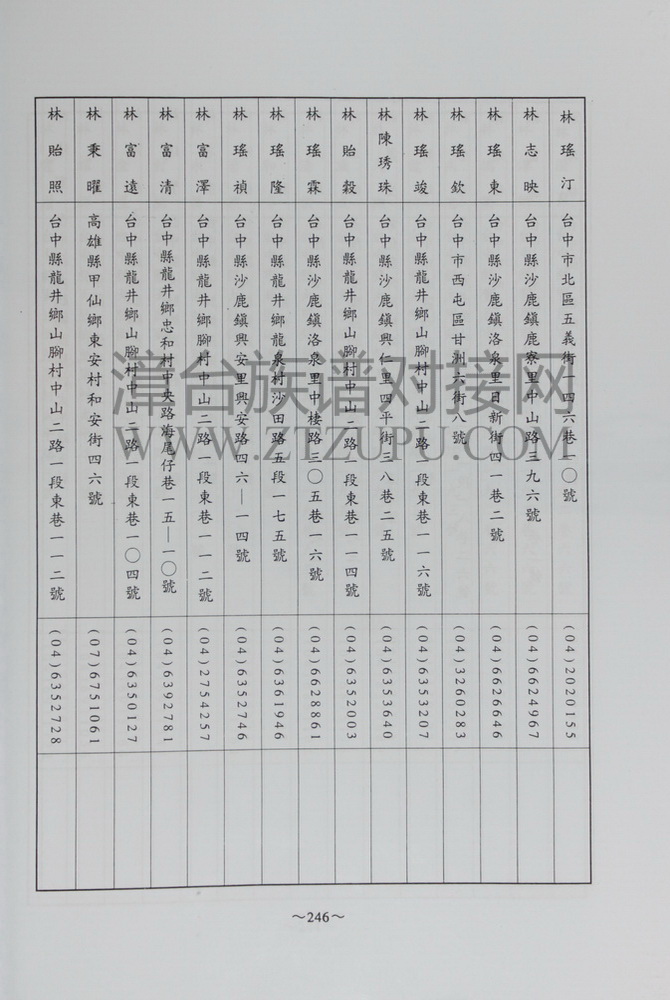 林瑤汀 台中市北區五義街一四六巷一〇號 (04)2020155
林志映 台中縣沙鹿鎮鹿寮里中山路三九六號 (04)6624967
林瑤東 台中縣沙鹿鎮洛泉里日新街四一巷二號 (04)6626646
林瑤欽 台中市西屯區甘洲六街八號 (04)3260283
林瑤竣 台中縣龍井鄉山腳村中山二路一段東巷一一六號 (04)6353207
林陳琇珠 台中縣沙鹿鎮興仁里四平街三八巷二五號 (04)6353640
林貽穀 台中縣龍井鄉山腳村中山二路一段東巷一一四號 (04)6352003
林瑤霖 台中縣沙鹿鎮洛泉里中棲路三〇五巷一六號 (04)6628861
林瑤隆 台中縣龍井鄉龍泉村沙田路五段一七五號 (04)6361946
林瑤禎 台中縣沙鹿鎮興安里興安路四六—一四號 (04)6352746
林富澤 台中縣龍井鄉山腳村中山二路一段東巷一一二號 (04)2754257
林富清 台中縣龍井鄉忠和村中央路海尾仔巷一五—一〇號 (04)6392781
林富遠 台中縣龍井鄉山腳村中山二路一段東巷一〇四號 (04)6350127
林秉曜 高雄縣甲仙鄉東安村和安街四六號 (07)6751061
林貽照 台中縣龍井鄉山腳村中山二路一段東巷一一二號 (04)6352728
漳台族谱对接网
WWW.ZTZUPU.COM
～246～